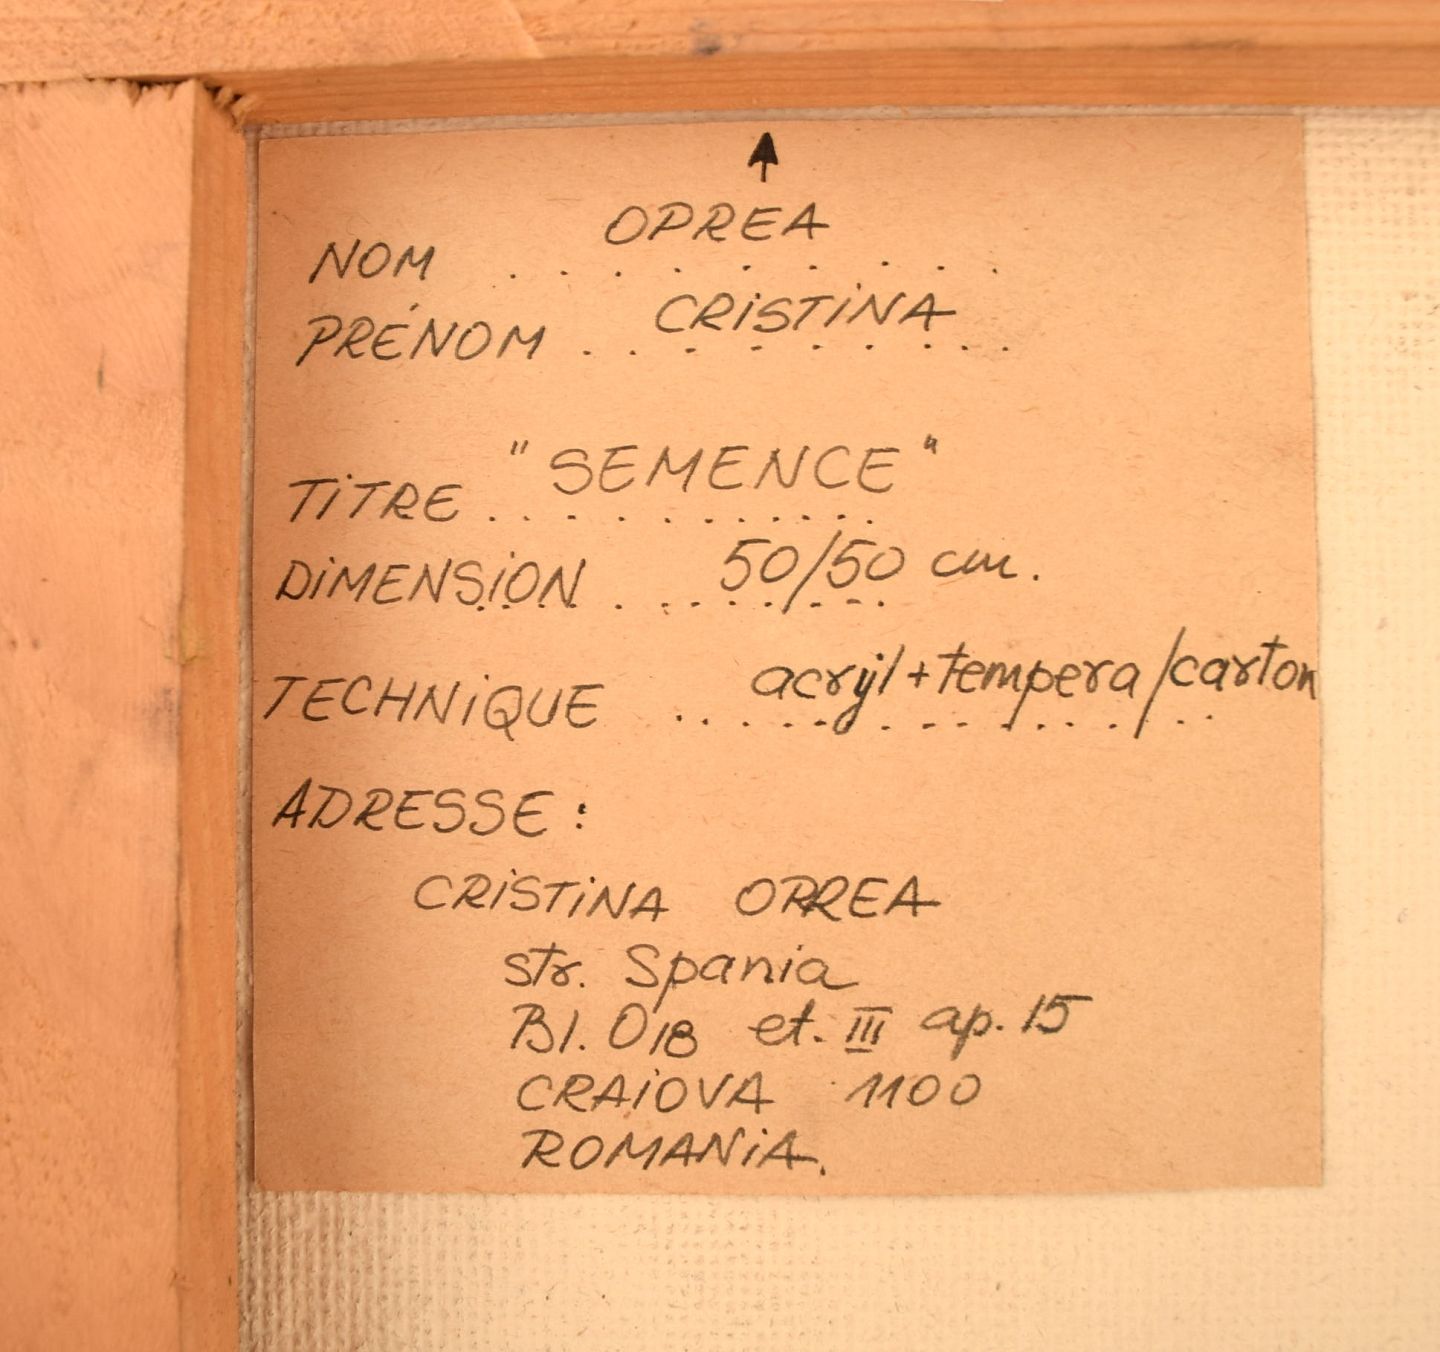 NOM . . . . . . . . . OPREA
PRÉNOM . . . . . . . . . CRiSTiNA
TiTRE . . . . . . . . . . "SEMENCE"
DiMENSiON . . . . . . . . 50/50 cm.
TECHNiQUE . . . . . . . . . . . acryl + tempera / carton
ADRESSE :
CRiSTiNA OPREA
str. Spania
Bl. O18 et. III ap. 15
CRAiOVA 1100
ROMANiA.